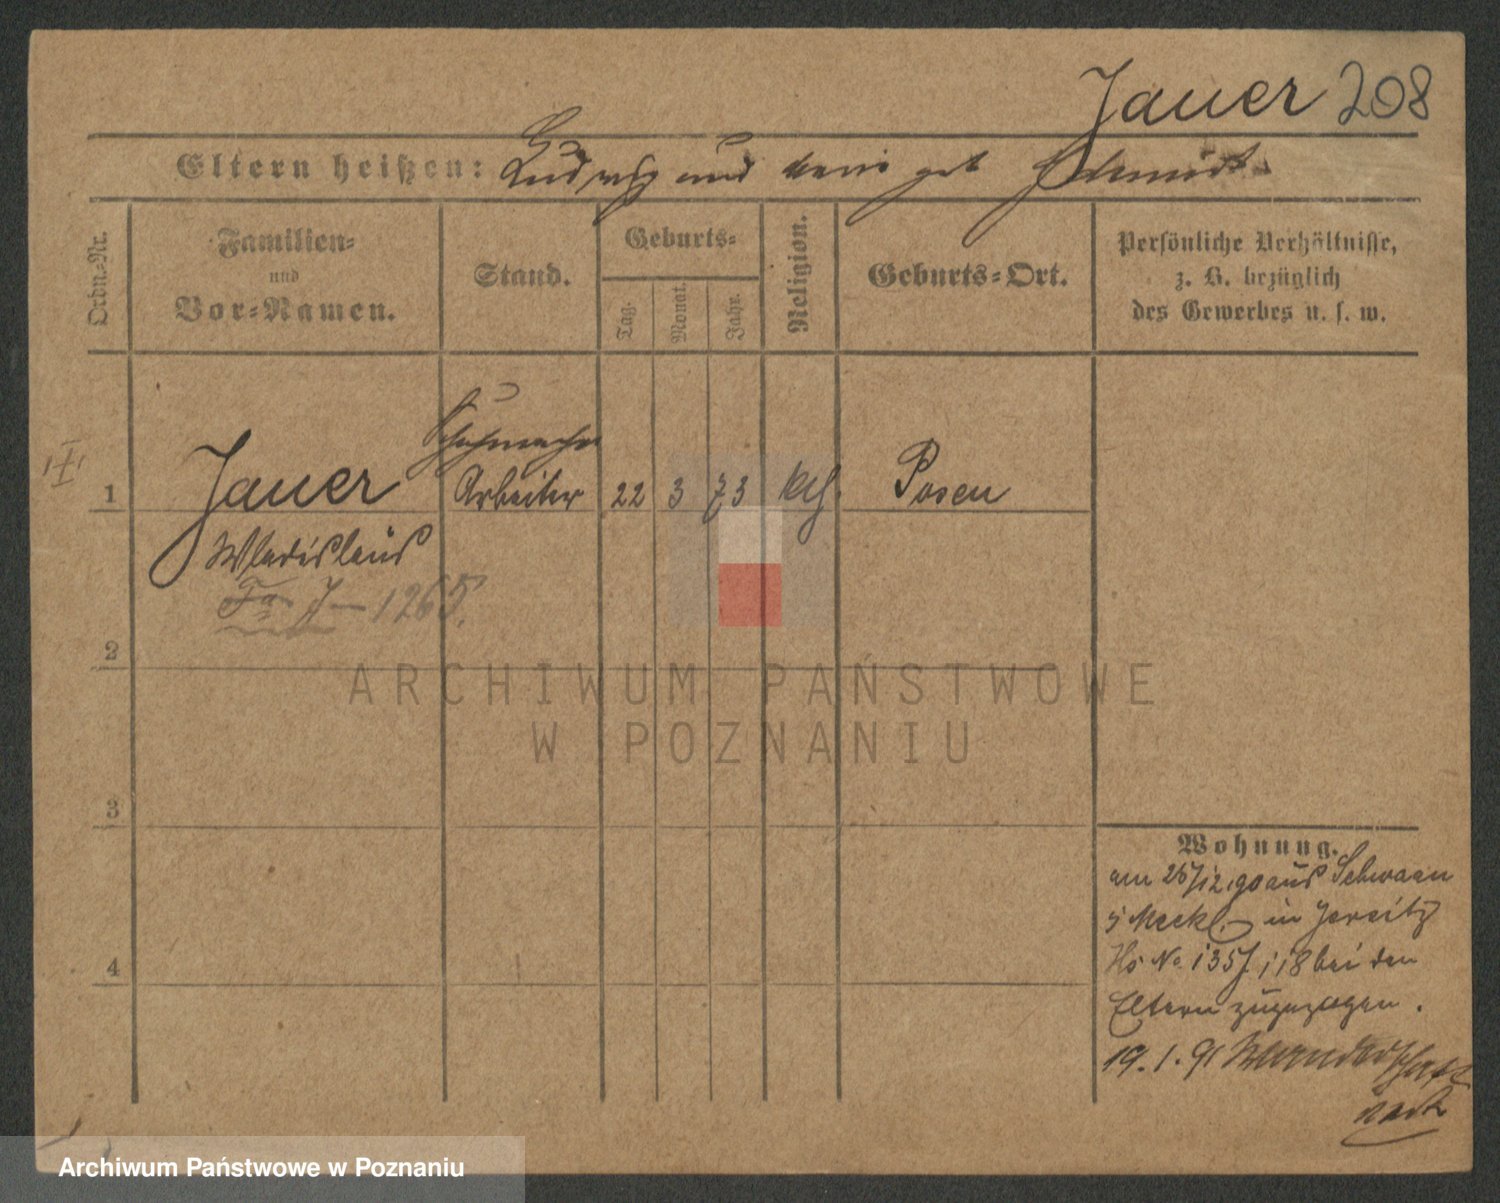 Jauer 208
Eltern heißen: Ludwig und geb Schmidt
Ordn.-Nr.
Familien-
und
Vor-Namen.
Stand.
Geburts-
Tag.
Monat.
Jahr.
Religion.
Geburts-Ort.
Persönliche Verhältnisse,
z. B. bezüglich
des Gewerbes u. s. w.
Schuhmacher
1 Jauer Arbeiter 22 3 73 kth. Posen
Wladislaus
J-1265.
2
3
4
Wohnung.
am 28/12.90 aus Schwaan
i Meckl. in Jersitz
Hs No 135 bei den
Eltern zugezogen.
19.1.91 Wanderschaft
ARCHIWUM PAŃSTWOWE
W POZNANIU
Archiwum Państwowe w Poznaniu